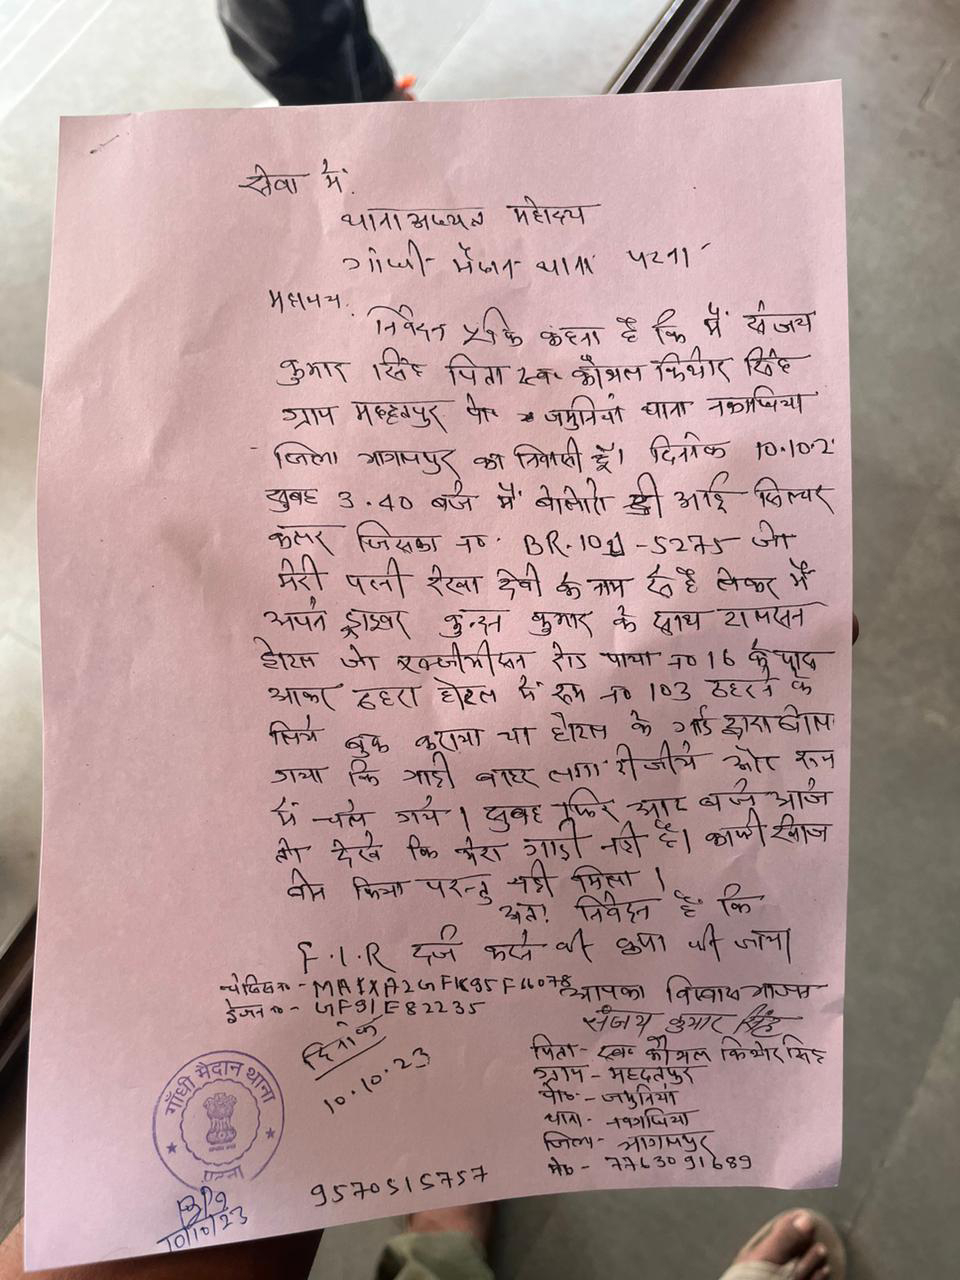 सेवा में.
थाना अध्यक्ष महोदय
गांधी मैदान थाना पटना
महाशय.
निवेदन पूर्वक कहना है कि मैं संजय
कुमार सिंह पिता स्व० कौशल किशोर सिंह
ग्राम महद्दतपुर पो० जमुनियां थाना
जिला भागलपुर का निवासी हूँ। दिनांक 10.10.2
सुबह 3.40 बजे में बोलेरो डी आई सिल्वर
कलर जिसका न०. BR.10 -5275 जो
मेरी पत्नी रेखा देवी के नाम से है लेकर मैं
अपने ड्राइवर कुन्दन कुमार के साथ
होटल जो एक्जीबीशन रोड पाया न० 16 के पास
आकर ठहरा होटल में रूम न० 103 ठहरने के
लिये बुक कराया था होटल के गार्ड द्वारा बोला
गया कि गाड़ी बाहर लगा दीजीये और रूम
में चले गये। सुबह फिर आठ बजे आज
तो देखे कि मेरा गाड़ी नही है। काफी खोज
बीन किया परन्तु नही मिला।
अतः निवेदन है कि
F.I.R दर्ज करने की कृपा की जाय।
चेचिस न० - MA1XA2GFK95F66078
इंजन न० - GF91E82235
आपका विश्वास भाजन
संजय कुमार सिंह
दिनांक
10.10.23
पिता- स्व० कौशल किशोर सिंह
ग्राम - महद्दतपुर
पो०- जमुनियां
थाना-
जिला- भागलपुर
मो० - 7763091689
गाँधी मैदान थाना
पटना
10/10/23
9570515757